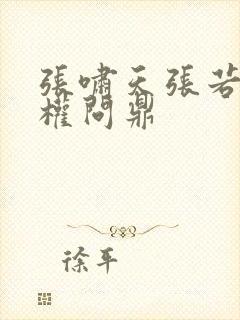 張嘯天張若
權問鼎
徐平